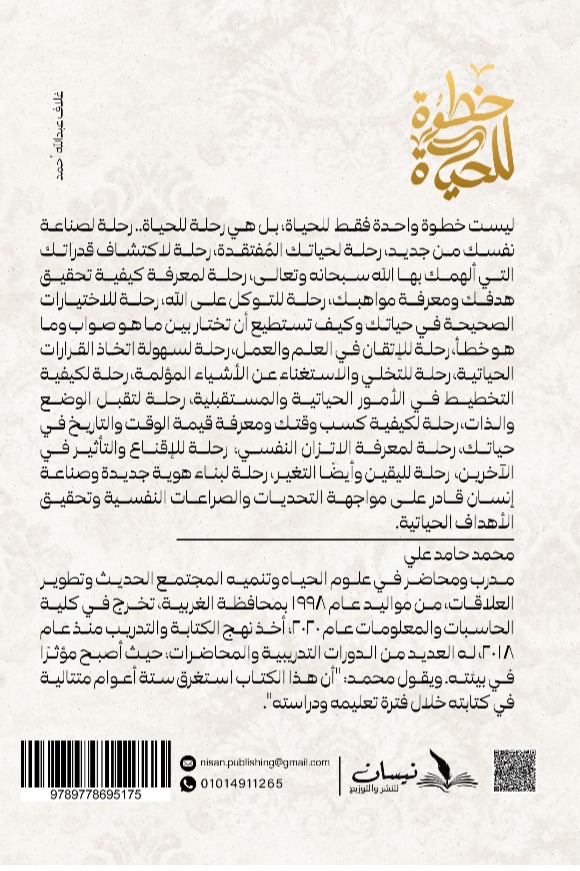 خطوة
للحياة
غلاف عبدالله أحمد
ليست خطوة واحدة فقط للحياة، بل هي رحلة للحياة.. رحلة لصناعة
نفسك من جديد، رحلة لحياتك المُفتقدة، رحلة لاكتشاف قدراتك
التي ألهمك بها الله سبحانه وتعالى، رحلة لمعرفة كيفية تحقيق
هدفك ومعرفة مواهبك، رحلة للتوكل على الله، رحلة للاختيارات
الصحيحة في حياتك وكيف تستطيع أن تختار بين ما هو صواب وما
هو خطأ، رحلة للإتقان في العلم والعمل، رحلة لسهولة اتخاذ القرارات
الحياتية، رحلة للتخلي والاستغناء عن الأشياء المؤلمة، رحلة لكيفية
التخطيط في الأمور الحياتية والمستقبلية، رحلة لتقبل الوضع
والذات، رحلة لكيفية كسب وقتك ومعرفة قيمة الوقت والتاريخ في
حياتك، رحلة لمعرفة الاتزان النفسي، رحلة للإقناع والتأثير في
الآخرين، رحلة لليقين وأيضًا التغير، رحلة لبناء هوية جديدة وصناعة
إنسان قادر على مواجهة التحديات والصراعات النفسية وتحقيق
الأهداف الحياتية.
محمد حامد علي
مدرب ومحاضر في علوم الحياه وتنميه المجتمع الحديث وتطوير
العلاقات، من مواليد عام ١٩٩٨ بمحافظة الغربية، تخرج في كلية
الحاسبات والمعلومات عام ٢٠٢٠، أخذ نهج الكتابة والتدريب منذ عام
٢٠١٨، له العديد من الدورات التدريبية والمحاضرات، حيث أصبح مؤثرًا
في بيئته. ويقول محمد: "أن هذا الكتاب استغرق ستة أعوام متتالية
في كتابته خلال فترة تعليمه ودراسته".
نيسان
للنشر والتوزيع
nisan.publishing@gmail.com
01014911265
9789778695175